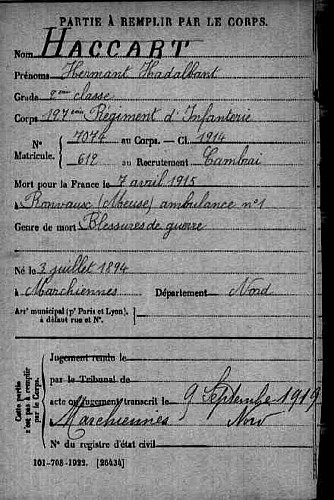 PARTIE À REMPLIR PAR LE CORPS.
Nom HACCART
Prénoms Hermant Hadalbant
Grade 2ème classe
Corps 127ème Régiment d'Infanterie
N° Matricule. 7074 au Corps. — Cl. 1914
612 au Recrutement Cambrai
Mort pour la France le 7 avril 1915
à Ronvaux (Meuse) ambulance n°1
Genre de mort Blessures de guerre
Né le 3 juillet 1894
à Marchiennes Département Nord
Arrt municipal (pr Paris et Lyon), à défaut rue et N°.
Cette partie n'est pas à remplir par le Corps.
Jugement rendu le
par le Tribunal de
acte ou jugement transcrit le 9 Septembre 1919
à Marchiennes Nord
N° du registre d'état civil
101-708-1922. [26434]